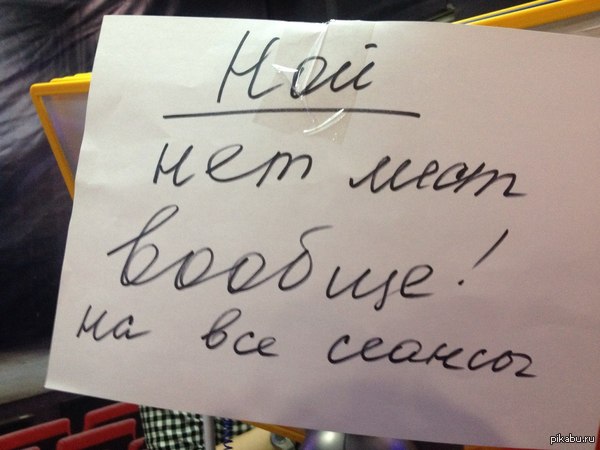 Ной
нет мест
вообще!
на все сеансы
pikabu.ru